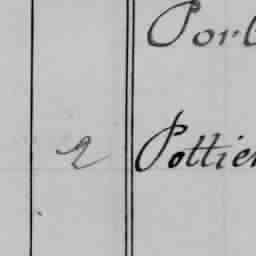 Port
2 Pottier